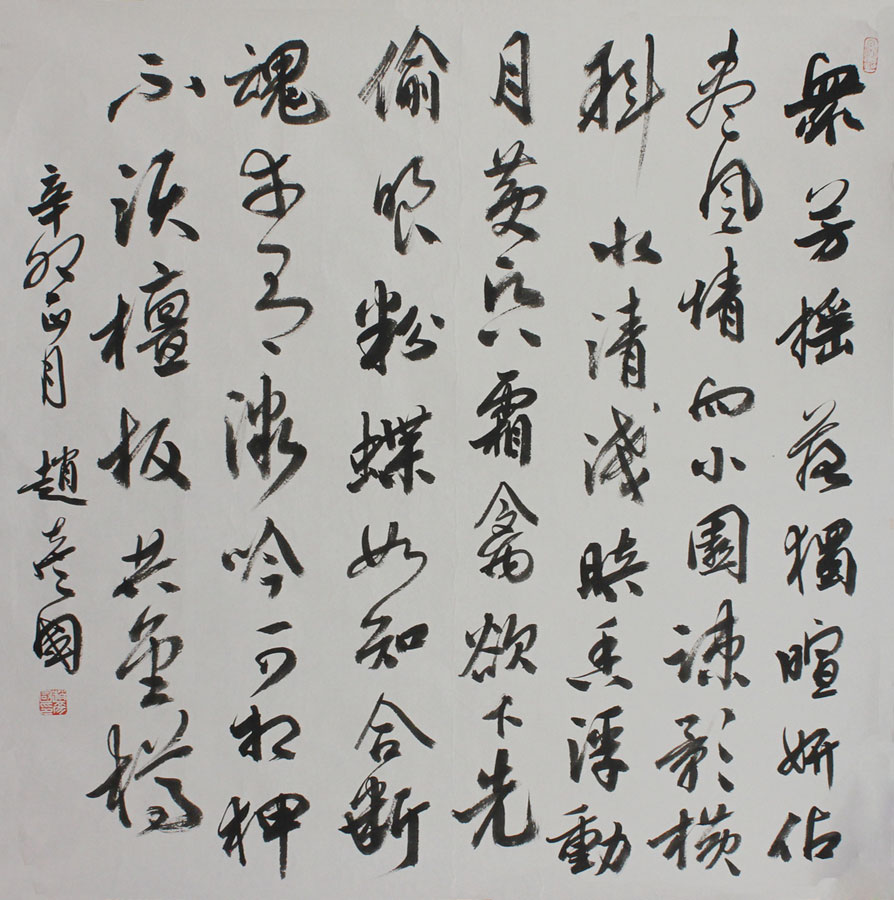 眾芳搖落獨暄妍佔
盡風情向小園疎影橫
斜水清淺暗香浮動
月黃昏霜禽欲下先
偷眼粉蝶如知合斷
魂幸有微吟可相狎
不須檀板共金樽
辛卯正月 趙國